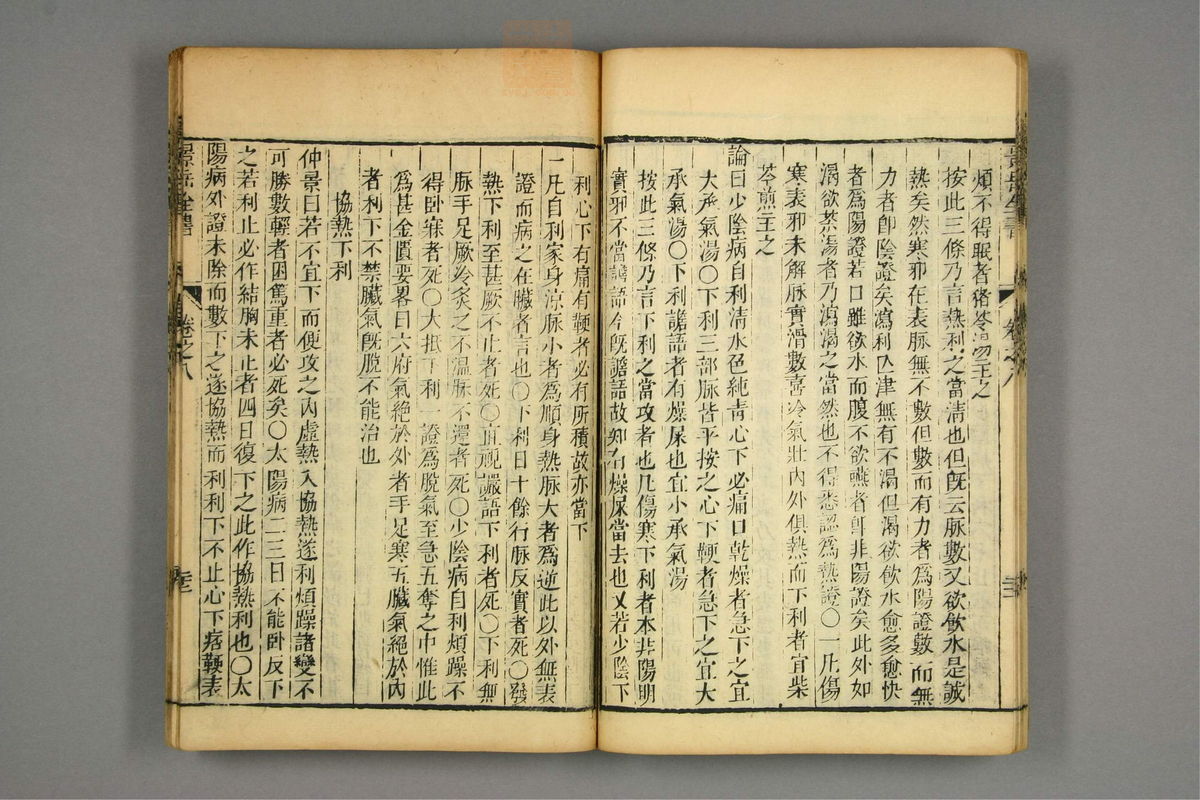 煩不得眠者猪苓湯主之
按此三條乃言熱利之當清也但既云脉數又欲飲水是誠
熱矣然寒邪在表脉無不數但數而有力者爲陽證數而無
力者卽陰證矣瀉利亾津無有不渴但渴欲飲水愈多愈快
者爲陽證若口雖欲水而腹不欲燕者卽非陽證矣此外如
渴欲茶湯者乃瀉渴之當然也不得悉認爲熱證○一凡傷
寒表邪未解脉實滑數喜冷氣壯內外俱熱而下利者宜柴
苓煎主之
論曰少陰病自利清水色純青心下必痛口乾燥者急下之宜
大承氣湯○下利三部脉皆平按之心下鞕者急下之宜大
承氣湯○下利譫語者有燥屎也宜小承氣湯
按此三條乃言下利之當攻者也凡傷寒下利者本非陽明
實邪不當譫語今既譫語故知有燥屎當去也又若少陰下
利心下有痛有鞕者必有所積故亦當下
一凡自利家身凉脉小者爲順身熱脉大者爲逆此以外無表
證而病之在臟者言也○下利日十餘行脉反實者死○發
熱下利至甚厥不止者死○直視讝語下利者死○下利無
脉手足厥冷灸之不溫脉不還者死○少陰病自利煩躁不
得卧寐者死○大抵下利一證爲脫氣至急五奪之中惟此
爲甚金匱要畧曰六府氣絕於外者手足寒五臟氣絕於內
者利下不禁臟氣既脫不能治也
協熱下利
仲景曰若不宜下而便攻之內虛熱入協熱遂利煩躁諸變不
可勝數輕者困篤重者必死矣○太陽病二三日不能卧反下
之若利止必作結胸未止者四日復下之此作協熱利也○太
陽病外證未除而數下之遂協熱而利利下不止心下痞鞕表
景岳全書
卷之八